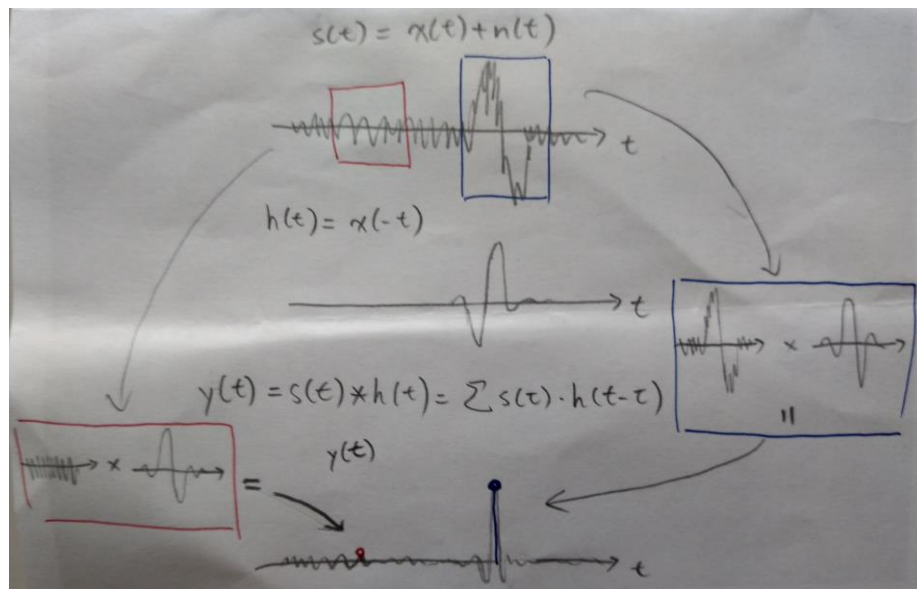 s(t) = x(t)+n(t)
t
h(t)= x(-t)
t
×
y(t) = s(t)*h(t)= Σ s(τ)·h(t-τ)
=
y(t)
× =
t